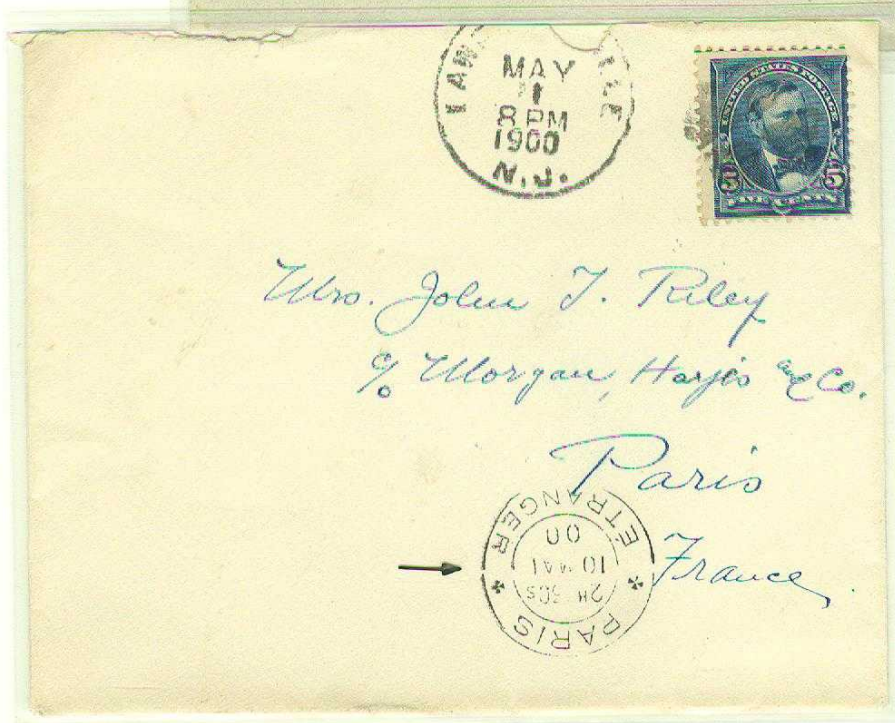 MAY
1
8 PM
1900
N.J.
UNITED STATES POSTAGE
5 5
FIVE CENTS
Mrs. John T. Riley
c/o Morgan, Harjis and Co.
Paris
France
PARIS ÉTRANGER
2H 30S
10 MAI
00